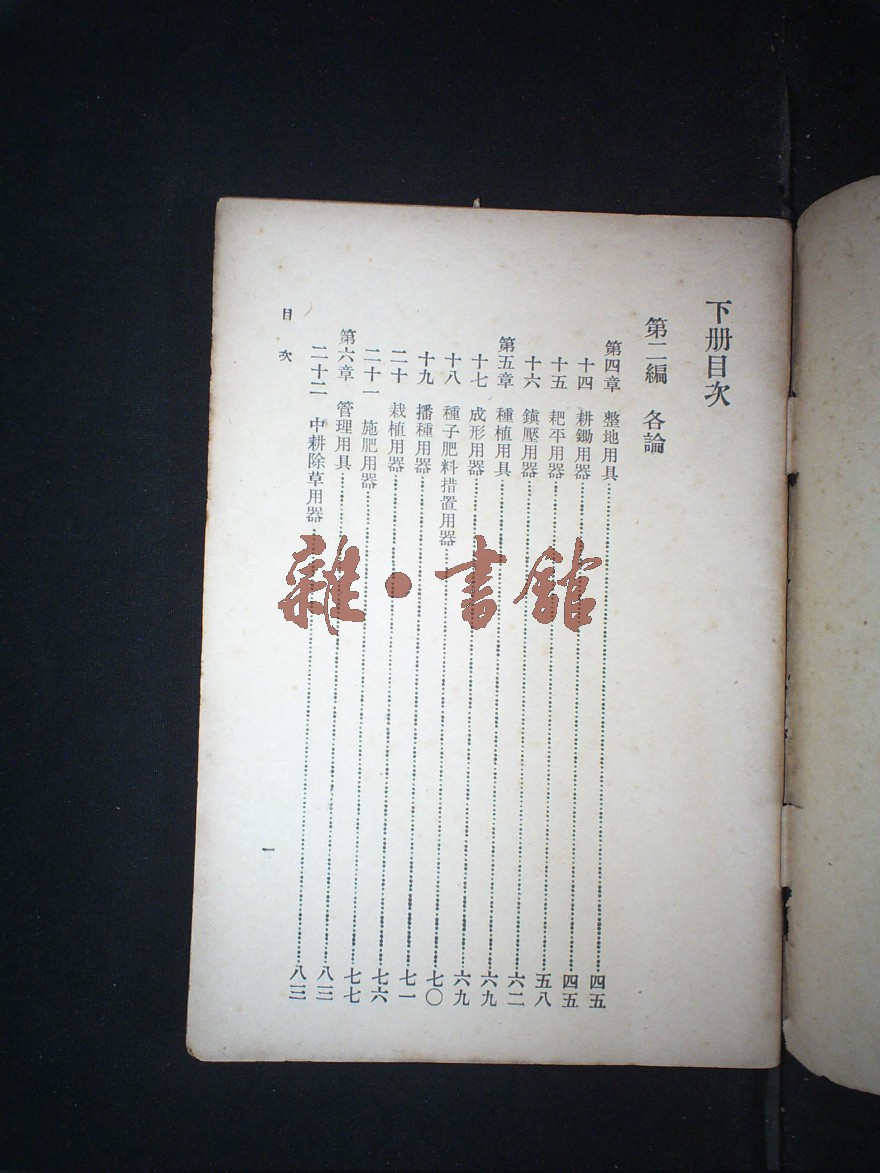 下册目次
第二編　各論
第四章　整地用具……四五
十四　耕鋤用器……四五
十五　耙平用器……五八
十六　鎭壓用器……六二
第五章　種植用具……六九
十七　成形用器……六九
十八　種子肥料措置用器……七〇
十九　播種用器……七一
二十　栽植用器……七六
二十一　施肥用器……七七
第六章　管理用具……八三
二十二　中耕除草用器……八三
目次
一
雜·書館